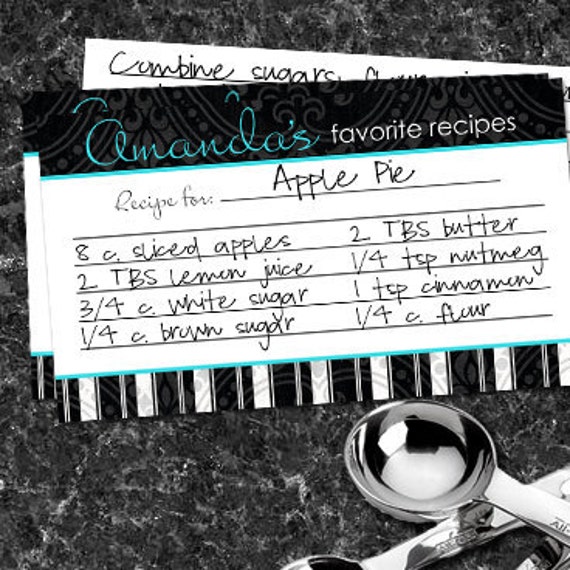 Combine sugars, flour,
Amanda's favorite recipes
Recipe for: Apple Pie
8 c. sliced apples
2 TBS lemon juice
3/4 c. white sugar
1/4 c. brown sugar
2 TBS butter
1/4 tsp nutmeg
1 tsp cinnamon
1/4 c. flour